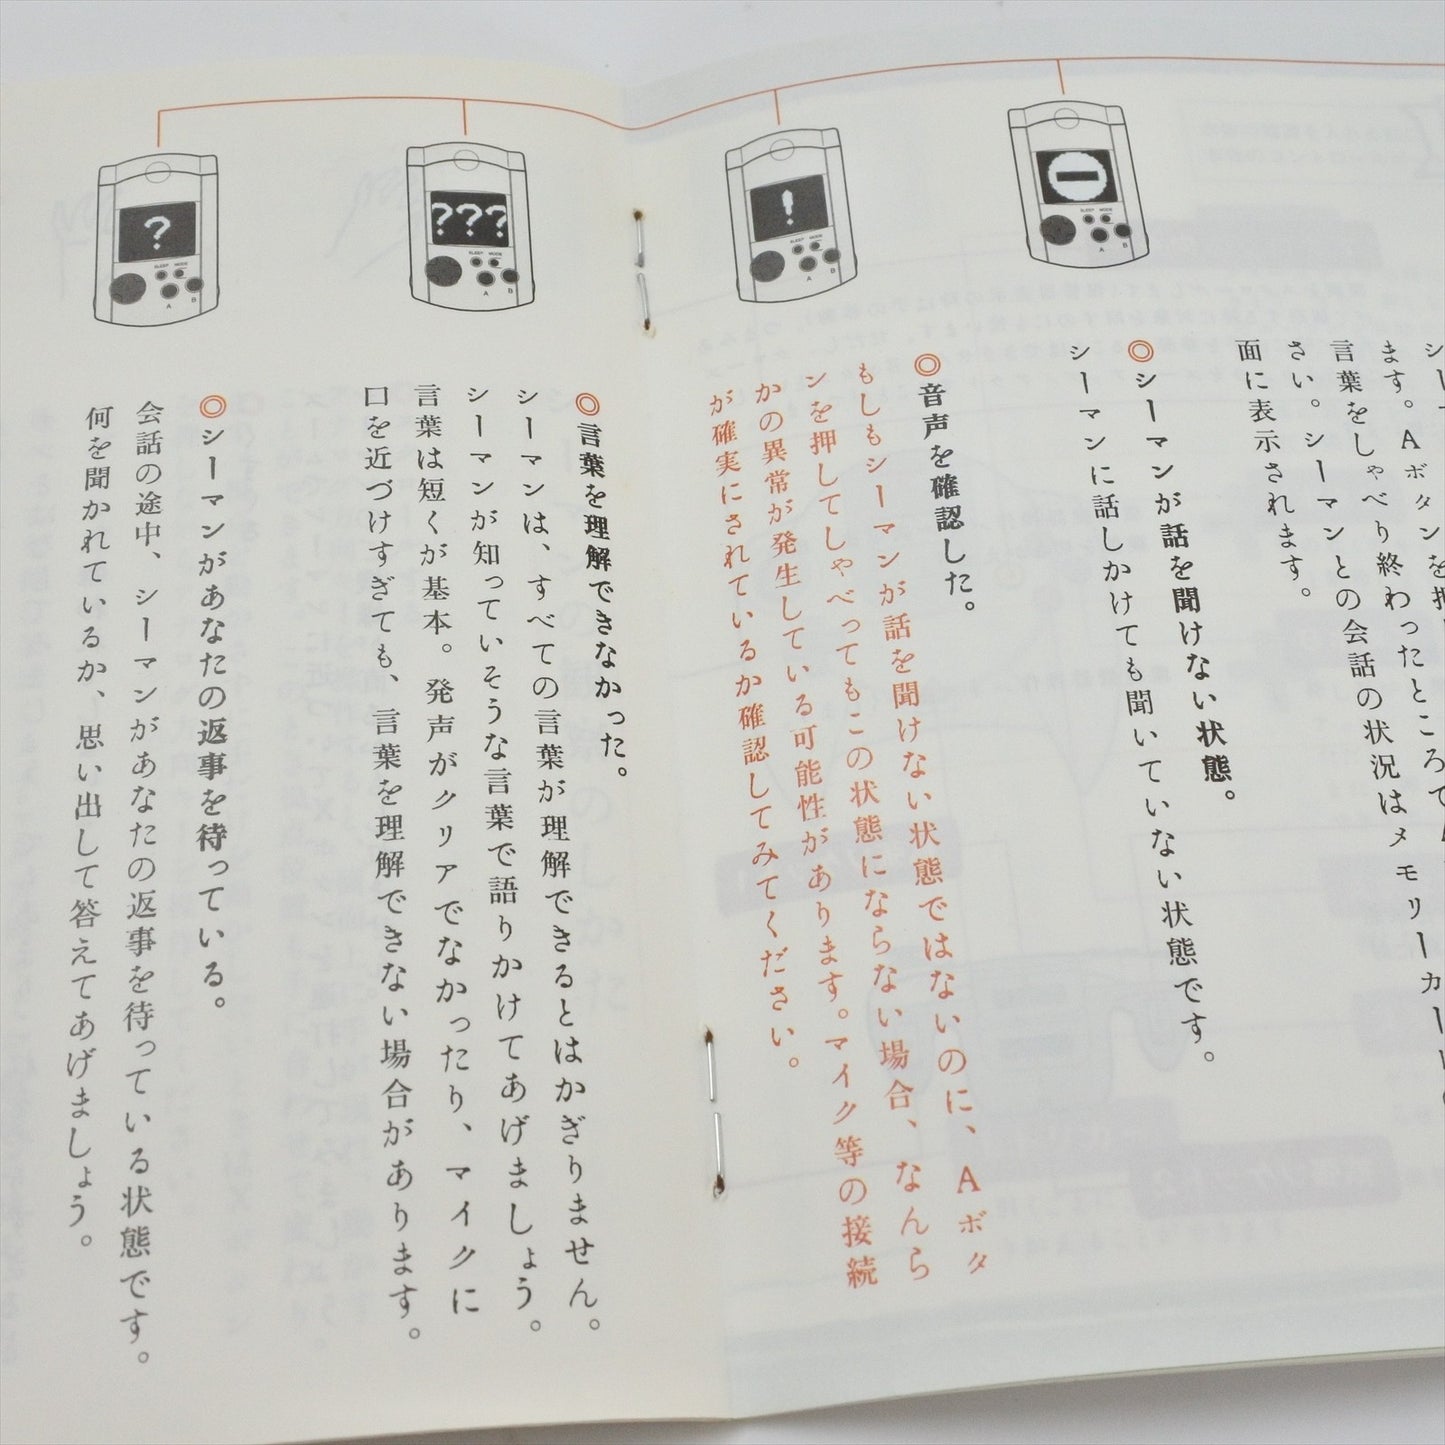 ます。Aボタンを押
言葉をしゃべり終わったところで
さい。シーマンとの会話の状況はメモリーカード
面に表示されます。
◎シーマンが話を聞けない状態。
シーマンに話しかけても聞いていない状態です。
◎音声を確認した。
もしもシーマンが話を聞けない状態ではないのに、Aボタ
ンを押してしゃべってもこの状態にならない場合、なんら
かの異常が発生している可能性があります。マイク等の接続
が確実にされているか確認してみてください。
◎言葉を理解できなかった。
シーマンは、すべての言葉が理解できるとはかぎりません。
シーマンが知っていそうな言葉で語りかけてあげましょう。
言葉は短くが基本。発声がクリアでなかったり、マイクに
口を近づけすぎても、言葉を理解できない場合があります。
◎シーマンがあなたの返事を待っている。
会話の途中、シーマンがあなたの返事を待っている状態です。
何を聞かれているか、思い出して答えてあげましょう。
SLEEP MODE
A B
!
SLEEP MODE
A B
???
SLEEP MODE
A B
?
SLEEP MODE
A B